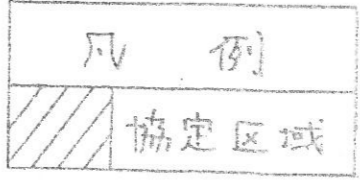 凡例
協定区域